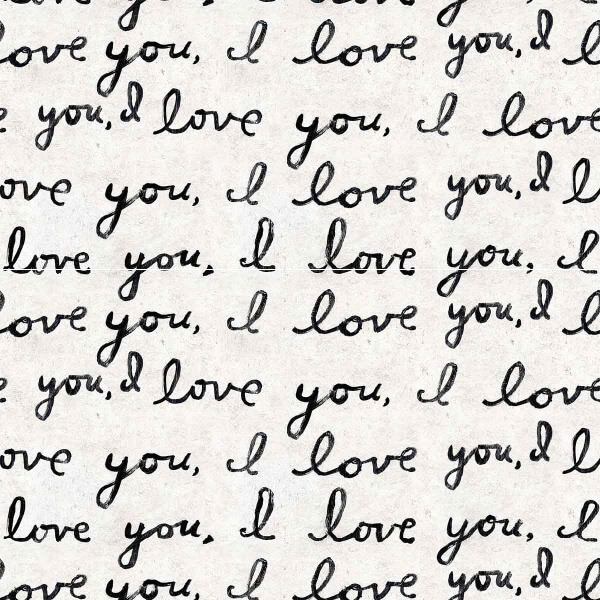 love you, I love you, I l
e you, I love you, I love
ove you, I love you, I l
love you, I love you, I
love you, I love you, I l
e you, I love you, I love
ove you, I love you, I l
love you, I love you, I
love you, I love you, I l